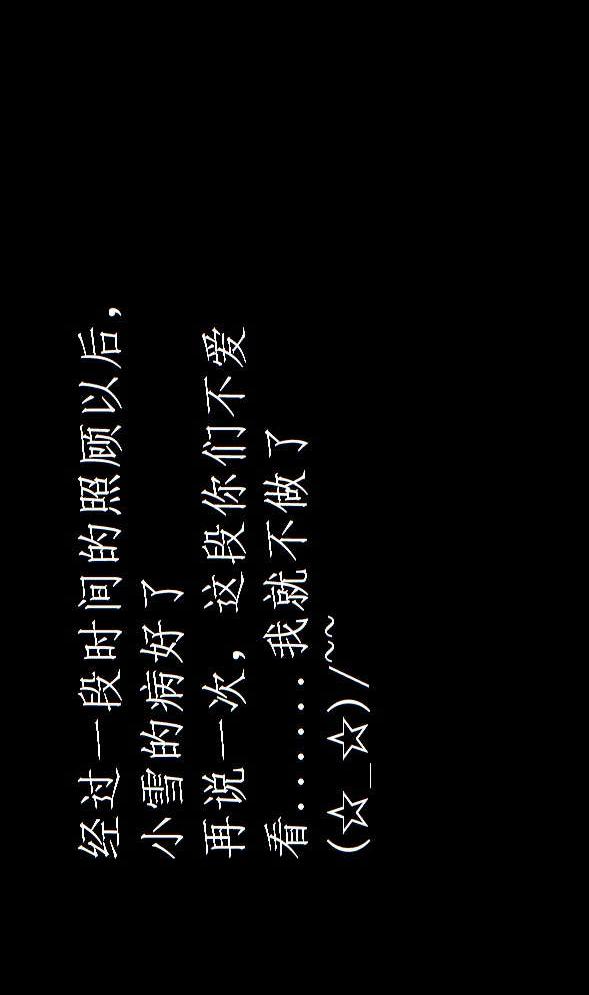 经过一段时间的照顾以后，
小雪的病好了
再说一次，这段你们不爱
看.......我就不做了
(☆_☆)/~~